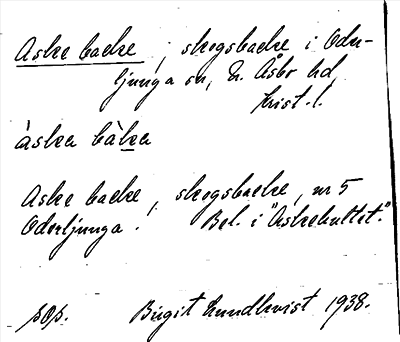 Aske backe, skogsbacke i Oder-
ljunga sn, N. Åsbo hd,
Krist. l.
àska bàka
Aske backe, skogsbacke, nr 5
Oderljunga. Bel. i "Askekultet."
pop. Birgit Lundkvist 1938.